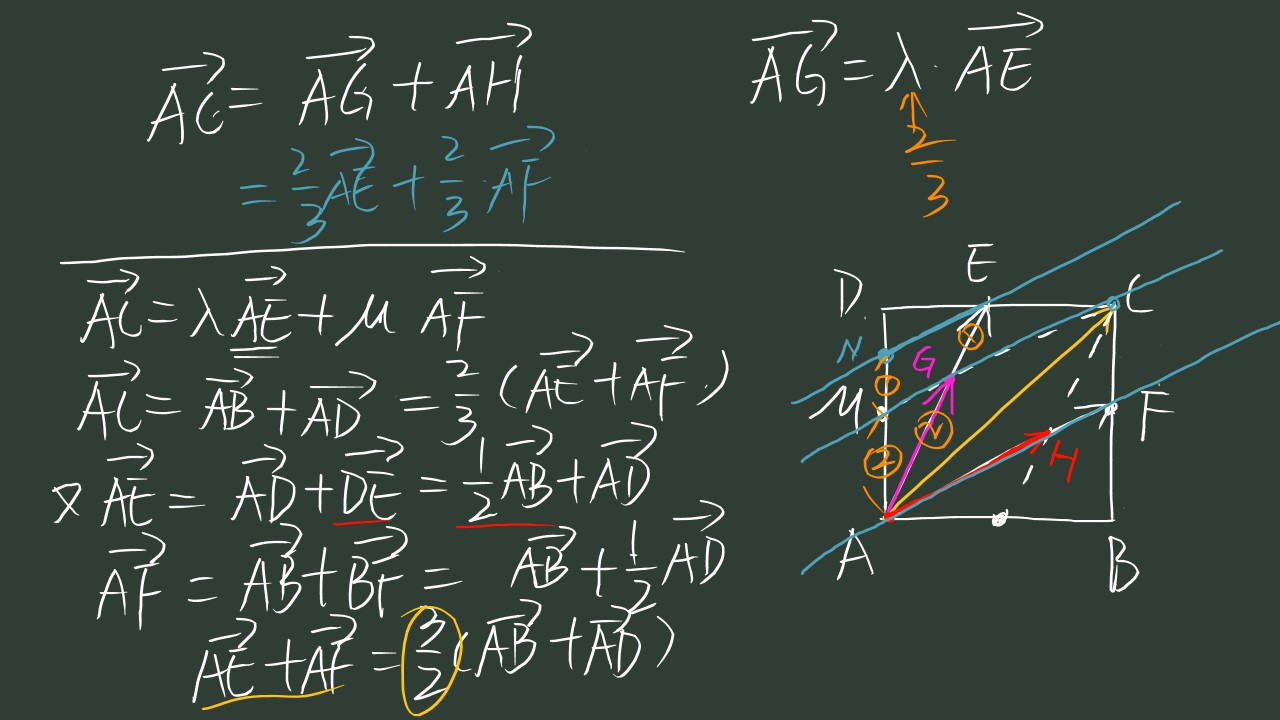 $\overrightarrow{AC} = \overrightarrow{AG} + \overrightarrow{AH}$
$= \frac{2}{3}\overrightarrow{AE} + \frac{2}{3} \cdot \overrightarrow{AF}$
$\overrightarrow{AC} = \lambda \overrightarrow{AE} + \mu \overrightarrow{AF}$
$\overrightarrow{AC} = \overrightarrow{AB} + \overrightarrow{AD} = \frac{2}{3}(\overrightarrow{AE} + \overrightarrow{AF})$
$\overrightarrow{AE} = \overrightarrow{AD} + \overrightarrow{DE} = \frac{1}{2}\overrightarrow{AB} + \overrightarrow{AD}$
$\overrightarrow{AF} = \overrightarrow{AB} + \overrightarrow{BF} = \overrightarrow{AB} + \frac{1}{2}\overrightarrow{AD}$
$\overrightarrow{AE} + \overrightarrow{AF} = \frac{3}{2}(\overrightarrow{AB} + \overrightarrow{AD})$
$\overrightarrow{AG} = \lambda \cdot \overrightarrow{AE}$
$\frac{2}{3}$
D E C
N G
M F
② H
A B